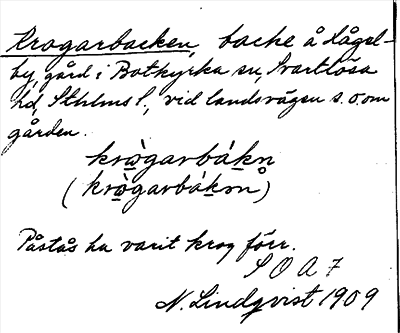 Krogarbacken, backe å Kågel-
by, gård i Botkyrka sn, Svartlösa
hd, Sthlms l., vid landsvägen s.o. om
gården.
krὼgarbák̲n
(krὼgarbák̲ən)
Påstås ha varit krog förr.
S O A 7
N. Lindqvist 1909